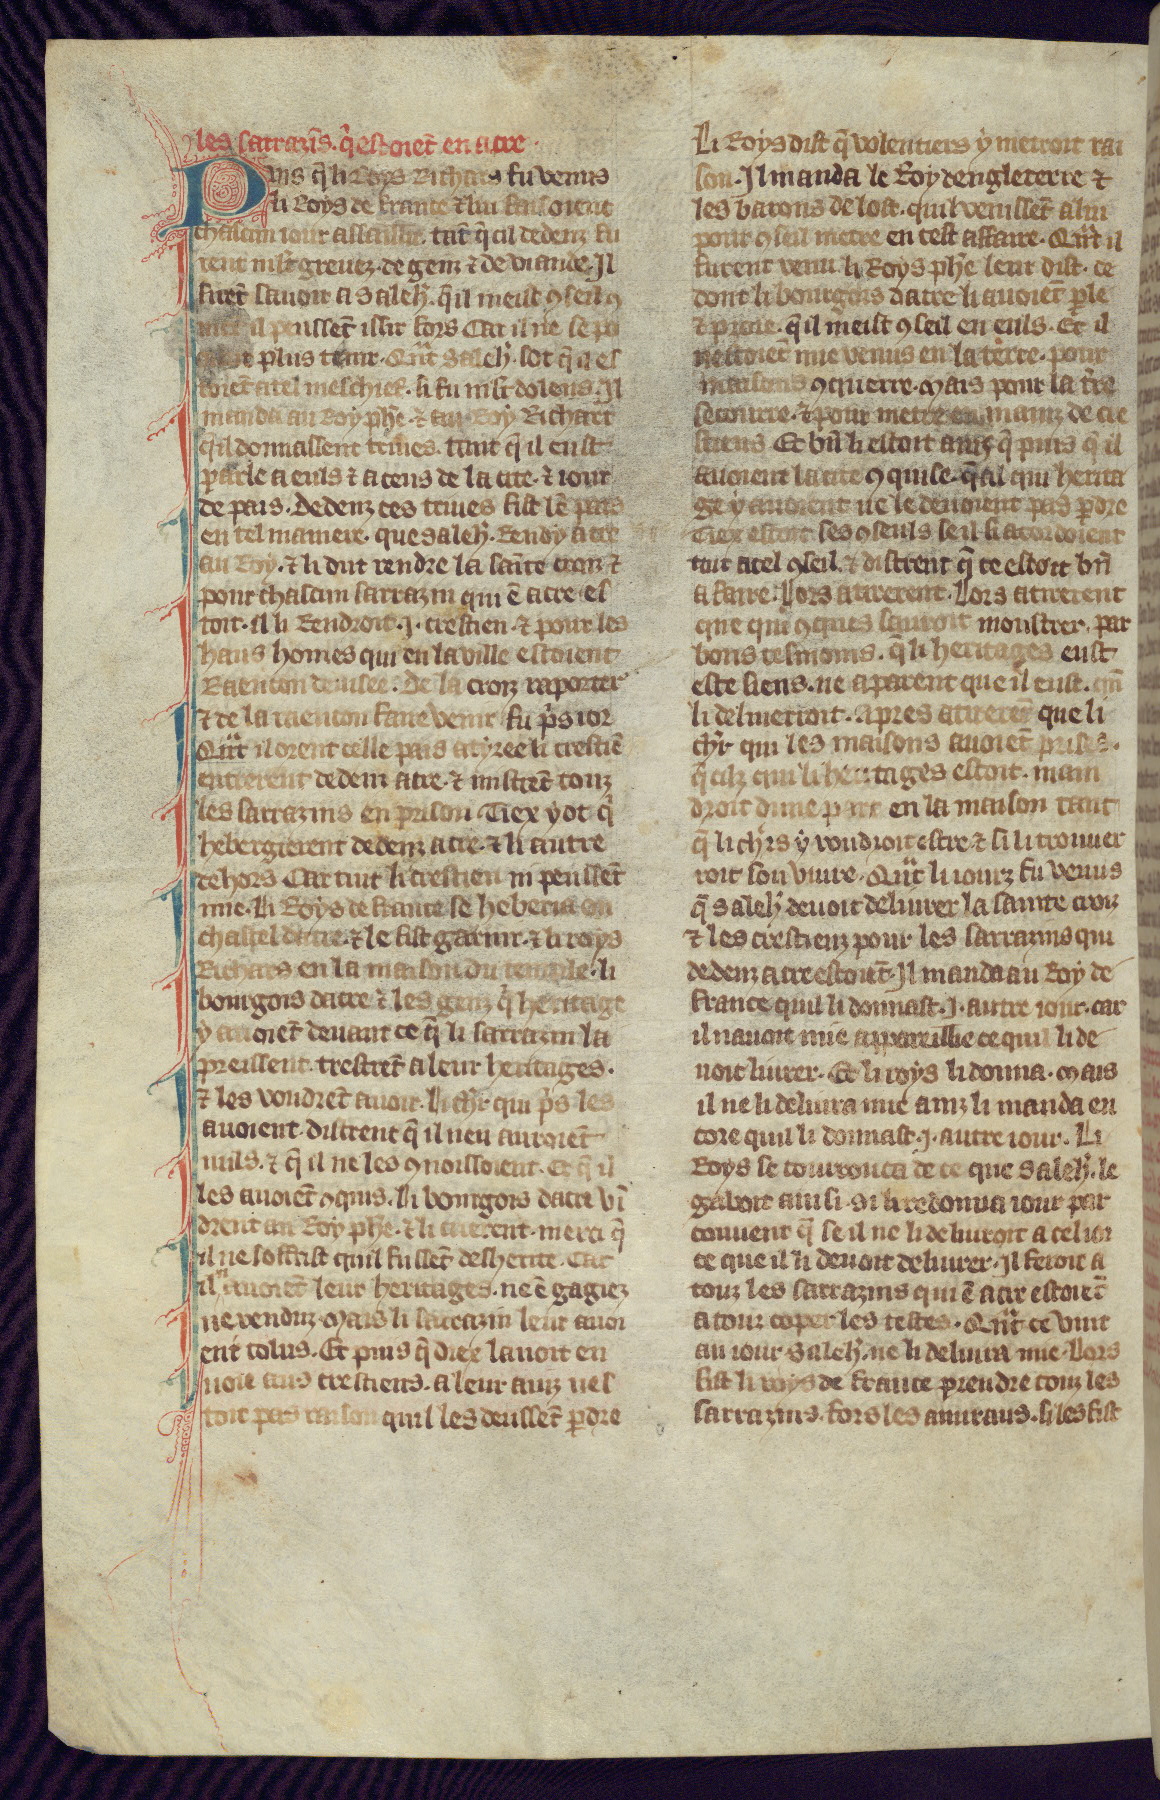 les sarrazīs. q̄ estoiēt en acre
Puis q̄ li Roys Richars fu venus
li Roys de france & lui faisoient
chascun iour assaillir. tāt q̄ cil dedenz fu
rent mlt greuez. de genz & de viande. Il
firēt sauoir a saleh̄. q̄ il meist ꝯseil
il peussēt issir fors Car il ne se po
plus tenir. Q̄nt saleh̄. sot q̄ il es
toiēt a tel meschief. si fu mlt dolens. Il
manda au Roy phe. & au Roy Richart
q̄il donnassent triues. tant q̄ il eust
parle a euls & a ceus de la cite. & iour
de pais. Dedenz ces triues fist lē pais
en tel maniere. que saleh̄. Rendy acre
au Roy. & li dut rendre la saīte croiz &
pour chascun sarrazin qui ē acre es
toit. il li Rendroit .j. crestien. & pour les
haus homes qui en la ville estoient
Raencon deuisee. De la croiz raporter
& de la raencon faire venir fu p̄s ior
Q̄nt il orent celle pais atyree li crestiē
entrerent dedenz acre. & mistrēt touz
les sarrazins en prison. Tiex y ot q̄
hebergierent dedenz acre. & li autre
dehors Car tuit li crestien ni peussēt
mie. Li Roys de france se heberia en
chastel dacre. & le fist garnir. & li roys
Richars en la maison du temple. li
bourgois dacre & les genz q̄ heritage
y auoiēt deuant ce q̄ li sarrazin la
preissent. trestrēt a leur heritages.
& les voudrēt auoir. Li chr̄ qui p̄s les
auoient. distrent q̄ il nen auroiēt
nuls. & q̄ il ne les ꝯnoissoient. Et q̄ il
les auoiēt ꝯquis. Li bourgois dacre vī
drent au Roy phe. & li crierent merci q̄
il ne soffrist quil fussēt desherite. Car
il nauoiēt leur heritages. ne ē gagiez
ne venduz. Mais li sarrazin leur auoi
ent tolus. Et puis q̄ diex lauoit en
uoie aus crestiens. a leur auiz nes
toit pas raison quil les deussēt ꝑdre
Li Roys dist q̄ volentiers y metroit rai
son. Il manda le Roy dengleterre &
les barons de lost. quil venissēt a lui
pour ꝯseil metre en cest affaire. Q̄nt il
furent venu. li Roys phe leur dist. ce
dont li bourgois dacre li auoiēt ꝑle
& prie. q̄ il meist ꝯseil en euls. Et il
nestoiēt mie venus en la terre. pour
maisons ꝯquerre. Mais pour la tr̄re
secourre. & pour metre en mainz de cre
stiens Et bn̄ li estoit auiz q̄ puis q̄ il
auoient la cite ꝯquise. q̄ cil qui herita
ge y auoient ne le deuoient pas ꝑdre
Tiex estoit ses ꝯseuls se il si acordoient
tuit a tel ꝯseil. & distrent q̄ ce estoit bn̄
a faire. Lors atirerent. Lors atirerent
que qui ꝯques sauroit moustrer. par
bons tesmoins. q̄ li heritages eust
este siens. ne a parent que il eust. qn̄
li deliuerroit. Apres atirerēt que li
chr̄ qui les maisons auoiēt prises.
q̄ cilz qui li heritages estoit. main
droit dune part en la maison tant
q̄ li chr̄s y voudroit estre. & si li trouuer
roit son viure. Q̄nt li iourz fu venus
q̄ saleh̄ deuoit deliurer la sainte croiz
& les crestienz pour les sarrazins qui
dedenz acre estoiēt. Il manda au Roy de
france quil li donnast .j. autre iour. car
il nauoit mie appareillie ce quil li de
uoit liurer. Et li roys li donna. Mais
il ne li deliura mie ainz li manda en
core quil li donnast .j. autre iour. Li
Roys se courouca de ce que saleh̄. le
gaboit ainsi. Si li redonna iour par
couuent q̄ se il ne li deliuroit a cel ior
ce que il li deuoit deliurer. Il feroit a
touz les sarrazins qui ē acre estoiēt
a touz coper les testes. Q̄nt ce vint
au iour saleh̄. ne li deliura mie. Lors
fist li roys de france prendre touz les
sarrazins. fors les amiraus. si les fist